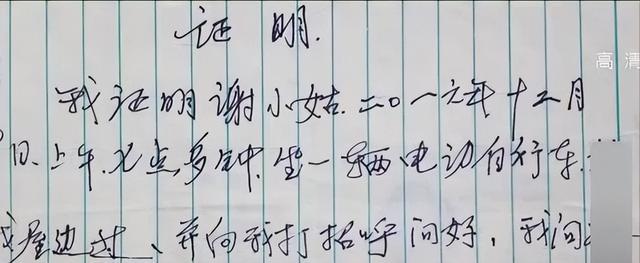 证 明.
高清
我证明谢小姑.二〇一六年十二月
日.上午.九点多钟.一辆电动自行车.
屋边过、并向我打招呼问好，我问